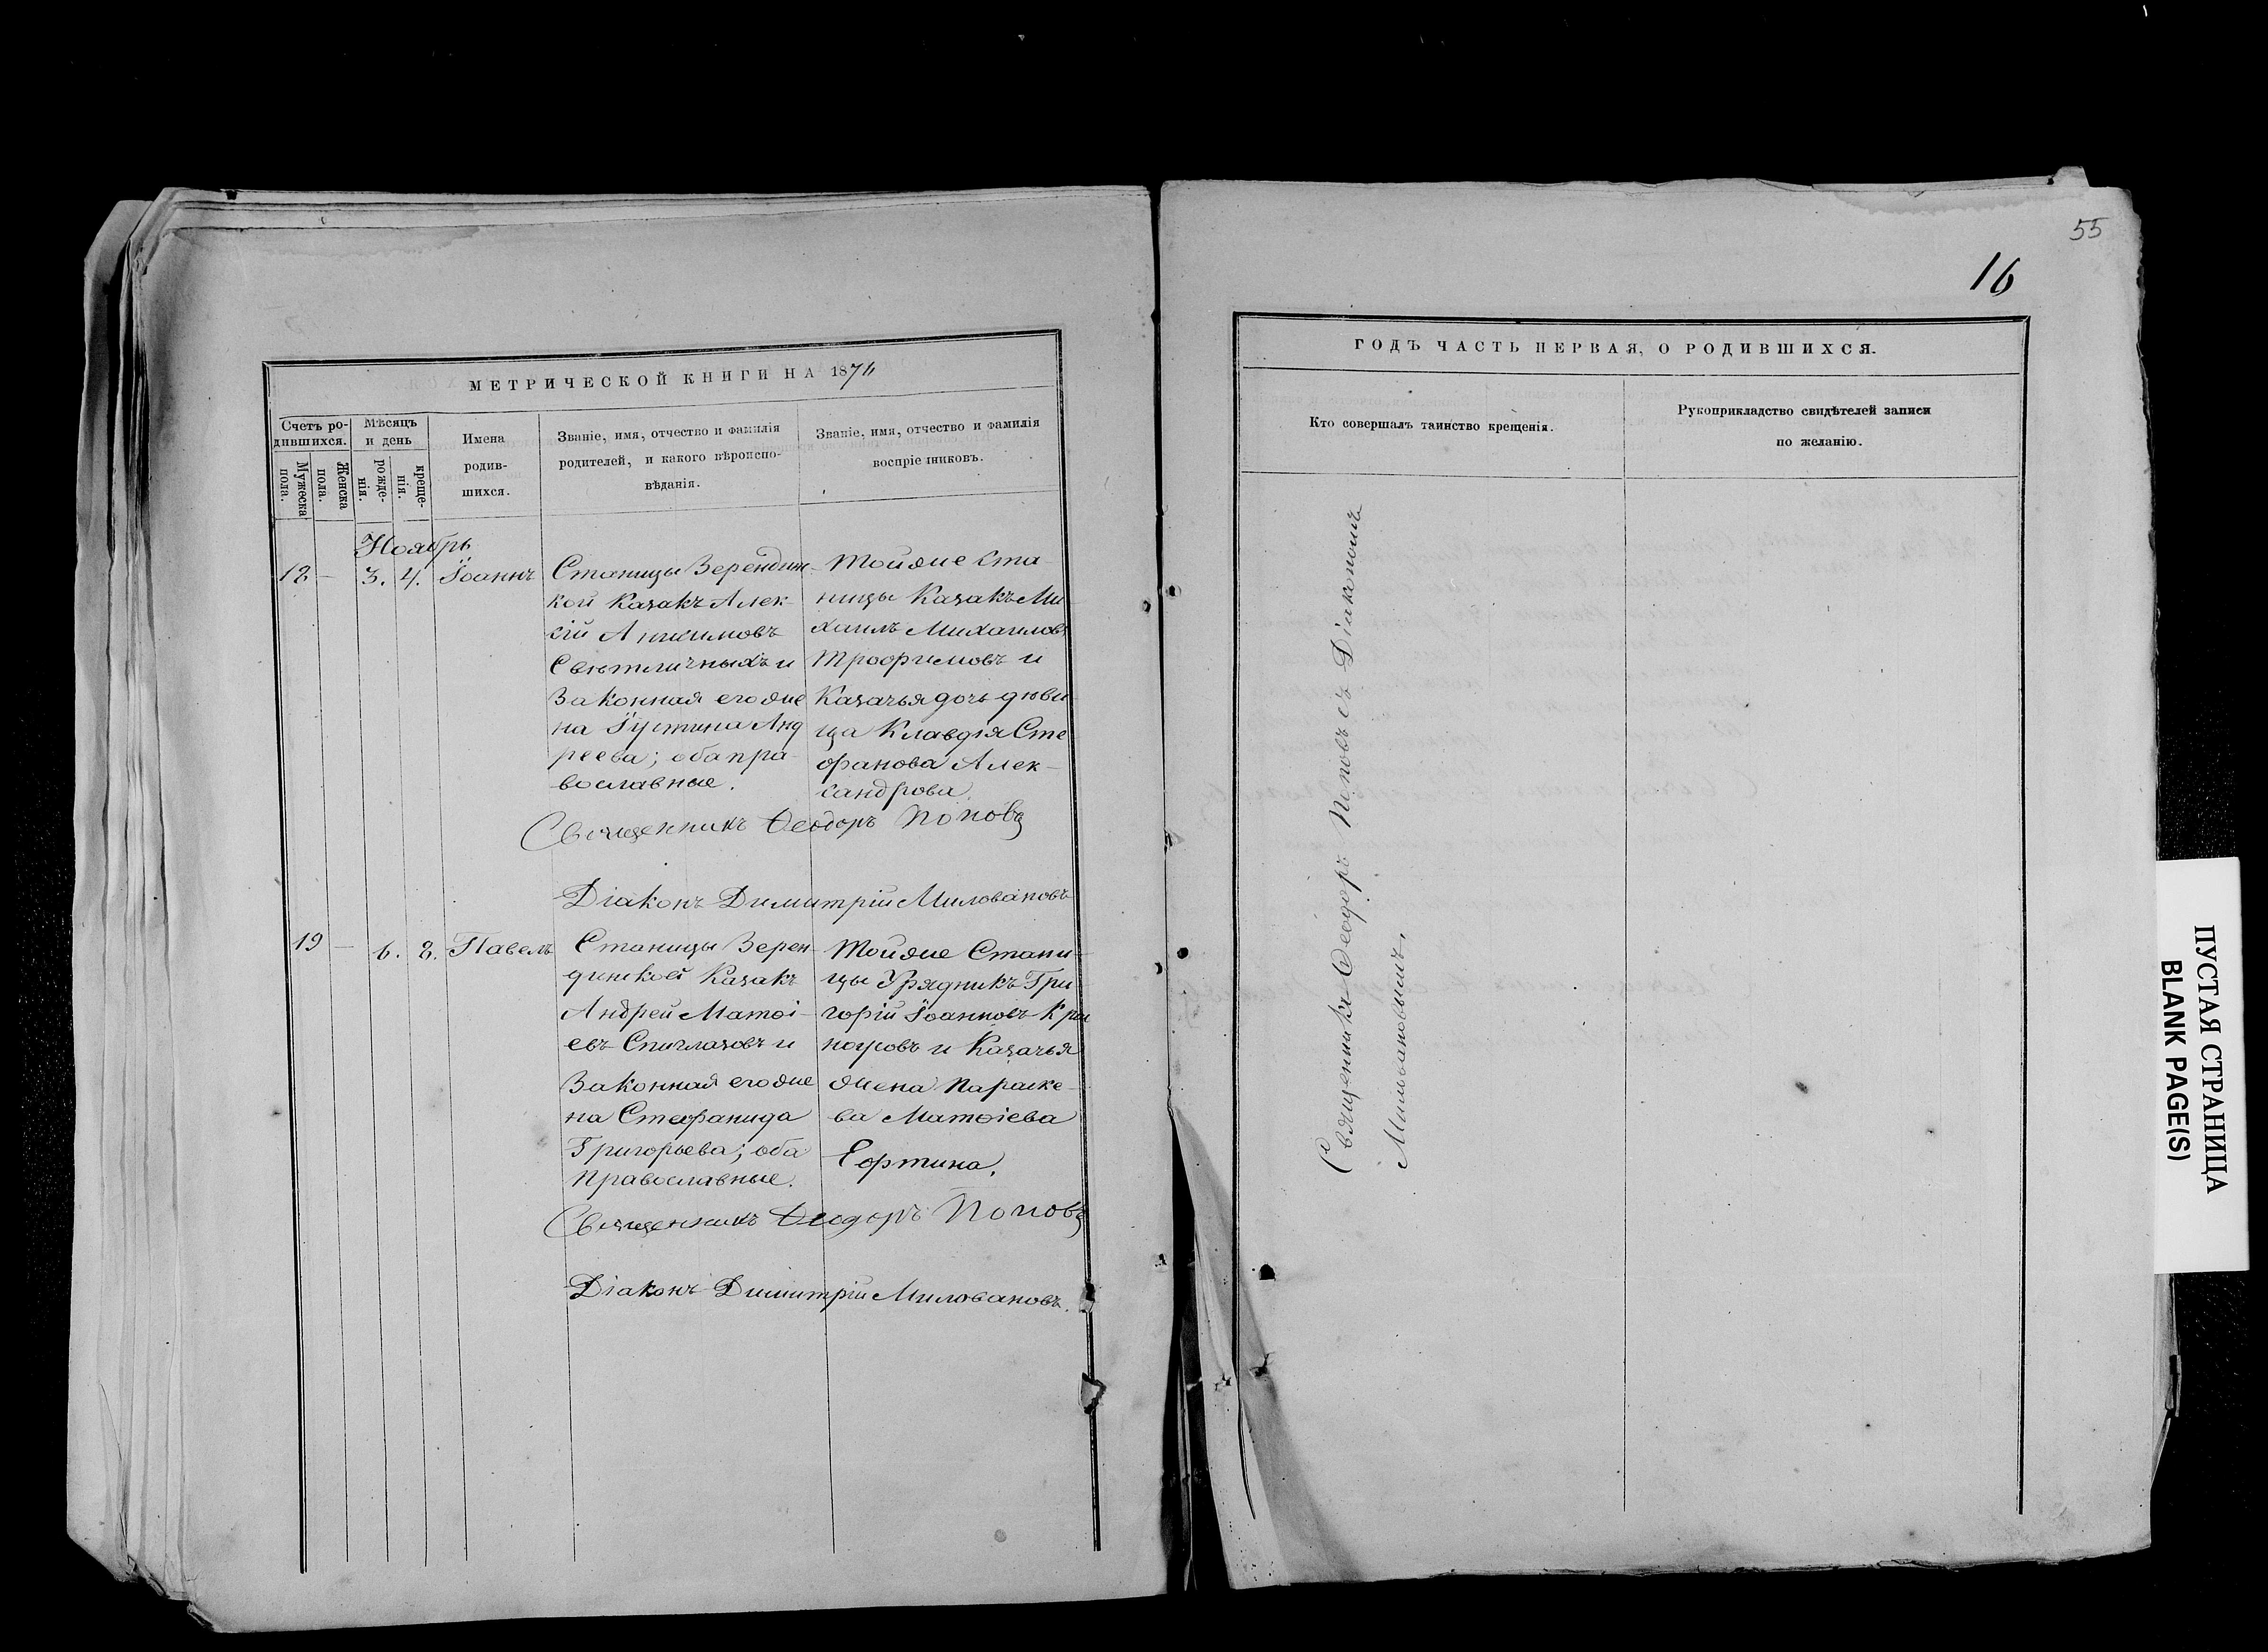 55
16
МЕТРИЧЕСКОЙ КНИГИ НА 1874
Счетъ ро-
дившихся.
Мужеска
пола.
Женска
пола.
Мѣсяцъ
и день
рожде-
нія.
креще-
нія.
Имена
родив-
шихся.
Званіе, имя, отчество и фамилія
родителей, и какого вѣроиспо-
вѣданія.
Званіе, имя, отчество и фамилія
воспріемниковъ.
Ноябрь
18 — 3. 4. Іоаннъ
Станицы
кой Казакъ Алек-
сій Анисимовъ
Свѣтличныхъ и
Законная его же
на Іустина Анд
реева; оба пра-
вославные.
Той же Ста
ницы Казакъ Ми
хаилъ Михаиловъ
Трофимовъ и
Казачья дочь дѣви
ца Клавдія Сте
фанова Алек-
сандрова.
Священникъ Ѳеодоръ Поповъ
Діаконъ Димитрій Миловановъ
19 — 6. 8. Павелъ
Станицы Верен-
динской Казакъ
Андрей Матѳі-
евъ и
Законная его же
на Стефанида
Григорьева; оба
Православные.
Той же Стани-
цы Урядникъ Гри
горій Іоанновъ
и Казачья
жена Параске-
ва Матѳіева
Ефтина.
Священникъ Ѳеодоръ Поповъ
Діаконъ Димитрій Миловановъ.
ГОДЪ ЧАСТЬ ПЕРВАЯ, О РОДИВШИХСЯ.
Кто совершалъ таинство крещенія.
Рукоприкладство свидѣтелей записи
по желанію.
Священникъ Ѳеодоръ Поповъ съ Діакономъ
Миловановымъ.
ПУСТАЯ СТРАНИЦА
BLANK PAGE(S)